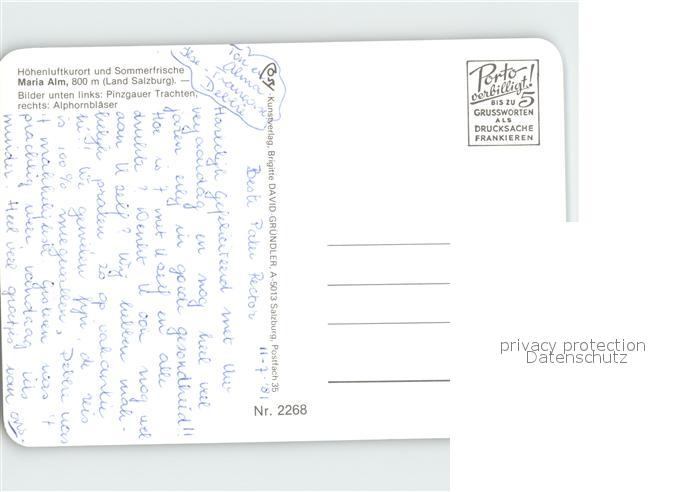 Höhenluftkurort und Sommerfrische
Maria Alm, 800 m (Land Salzburg). —
Bilder unten links: Pinzgauer Trachten,
rechts: Alphornbläser
Ton en
Alma
Ilse - Françoise
Debbie
Porto
verbilligt!
BIS ZU 5
GRUSSWORTEN
ALS
DRUCKSACHE
FRANKIEREN
Kunstverlag, Brigitte DAVID-GRÜNDLER, A-5013 Salzburg, Postfach 35
Nr. 2268
11-7-'81
Beste Pater Rector
Hartelijk Gefeliciteerd met Uw
verjaardag en nog heel veel
jaren erbij in goede gezondheid!!
Hoe is 't met U zelf en alle
drukte? Denkt U ook nog wel
aan U zelf? Wij hebben
praten zo op vakantie
hè!! We genieten fijn, de reis
is 100% meegevallen, Debbie was
't gisteren was 't
prachtig weer, vandaag iets
minder. Heel veel groetjes van ons.
privacy protection
Datenschutz